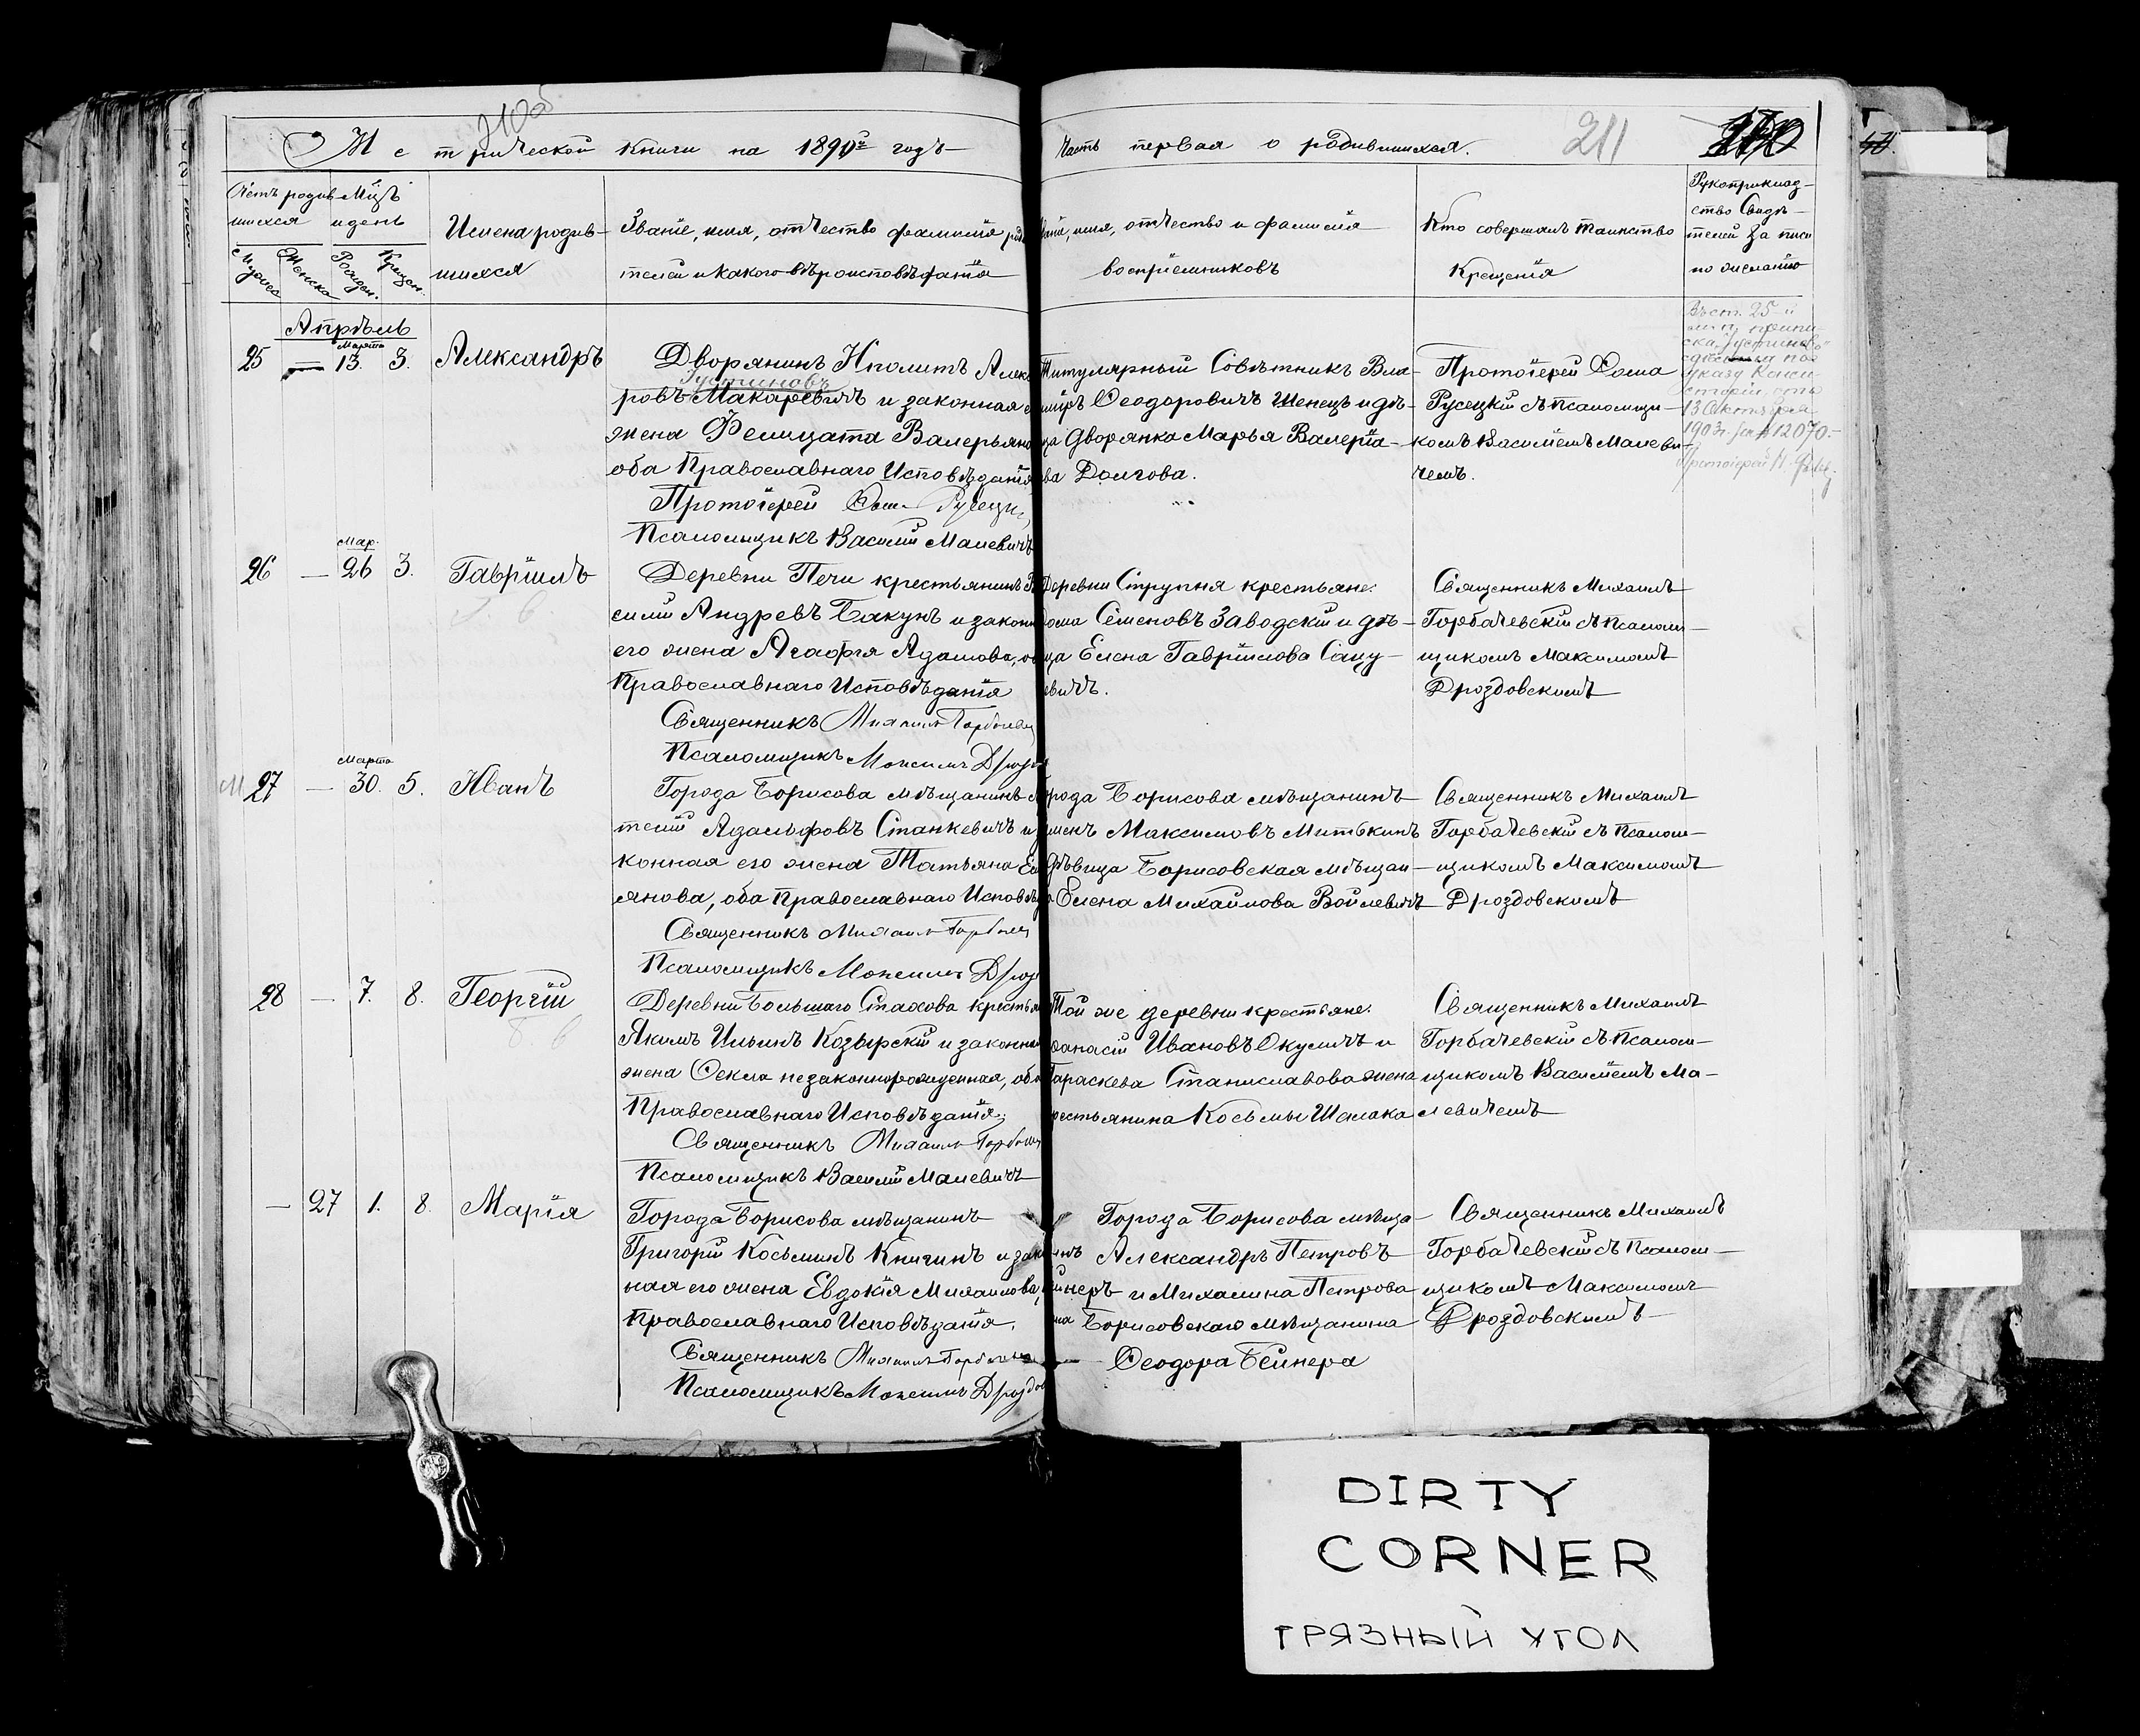 Метрической книги на 1890й годъ
Часть первая о родившихся.
211
Счетъ родив- Мцъ
шихся и день
Имена родив-
шихся
Званіе, имя, отчество фамилія род
телей и какого вѣроисповѣданія
имя, отчество и фамилія
воспріемниковъ
Кто совершалъ таинство
Крещенія
Рукоприклад-
ство Свидѣ-
телей за писи
по желанію
Апрѣль
Марта
25 — 13. 3. Александръ
Дворянинъ Иполитъ Алекс
Густиновъ
ровъ Макаревичъ и законная е
жена Фелицата Валерьяно
оба Православнаго Исповѣданія
Протоіерей Фома Русецкі
Псаломщикъ Василій Малевичъ
Титулярный Совѣтникъ Вла-
миръ Ѳеодоровичъ Шенецъ и дѣ-
ца дворянка Марья Валерія-
ва Долгова.
Протоіерей Фома
Русецкій съ псаломщи-
комъ Василіемъ Малеви-
чемъ.
13 Октября
1903 г. за № 12070.
Мар.
26 — 26 3. Гавріилъ
Деревни Печи крестьянинъ В
силій Андревъ Бакунъ и законн
его жена Агафія Адамова, об
Православнаго Исповѣданія
Священникъ Михаилъ Горбачев
Псаломщикъ Максимъ Дрозд
Деревни Струпня крестьяне:
ома Семеновъ Заводскій и дѣ-
ца Елена Гавріилова Сацу-
евичъ.
Священникъ Михаилъ
Горбачевскій съ псалом-
щикомъ Максимомъ
Дроздовскимъ
Марта
М 27 — 30. 5. Иванъ
Города Борисова мѣщанинъ
телій Адальфовъ Станкевичъ и з
конная его жена Татьяна Ем
янова, оба Православнаго Исповѣд
Священникъ Михаилъ Горбачев
Псаломщикъ Максимъ Дрозд
рода Борисова мѣщанинъ
Максимовъ Митькинъ
дѣвица Борисовская мѣщан-
Елена Михайлова Войлевичъ
Священникъ Михаилъ
Горбачевскій съ Псалом-
щикомъ Максимомъ
Дроздовскимъ
28 — 7. 8. Георгій
Деревни Большаго Стахова крестьян
Якимъ Ильинъ Козырскій и законная
жена Ѳекла незаконнорожденная, оба
Православнаго Исповѣданія;
Священникъ Михаилъ Горбачев
Псаломщикъ Василій Малевичъ
Той же деревни крестьяне:
фанасій Ивановъ Окуличъ и
Параскева Станиславова жена
рестьянина Косьмы Шалака
Священникъ Михаилъ
Горбачевскій съ Псалом-
щикомъ Василіемъ Ма-
левичемъ
— 27 1. 8. Марія
Города Борисова мѣщанинъ
Григорій Косьминъ Кничинъ и зако
ная его жена Евдокія Михаилова,
Православнаго Исповѣданія.
Священникъ Михаилъ Горбачев
Псаломщикъ Максимъ Дроздов
Города Борисова мѣща-
инъ Александръ Петровъ
йнеръ и Михалина Петрова
на Борисовскаго мѣщанина
Ѳеодора Бейнера
Священникъ Михаилъ
Горбачевскій съ Псалом-
щикомъ Максимомъ
Дроздовскимъ
DIRTY
CORNER
ГРЯЗНЫЙ УГОЛ